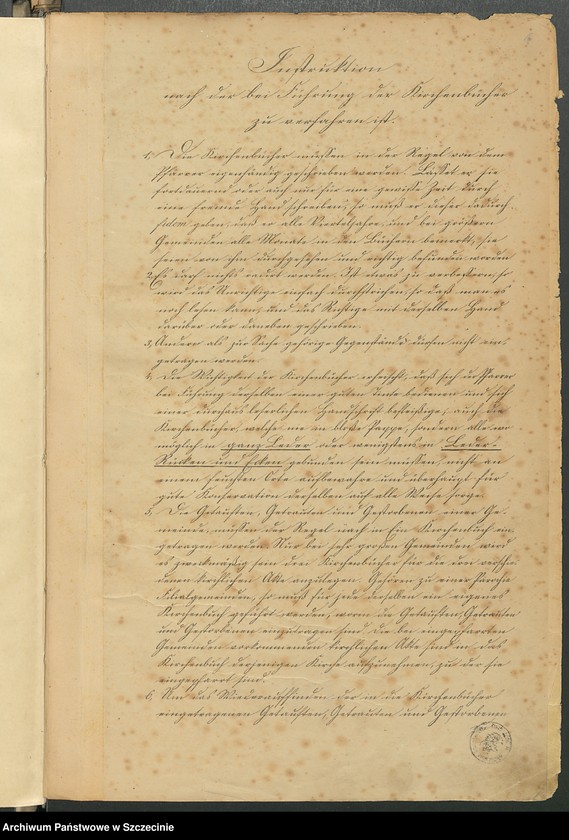 Instruktion
nach der bei Führung der Kirchenbücher
zu verfahren ist.
1, Die Kirchenbücher müssen in der Regel von dem
Pfarrer eigenhändig geschrieben werden. Lässet er sie
fortdauernd oder auch nur für eine gewisse Zeit durch
eine fremde Hand schreiben, so muß er dieser dadurch
fidem geben, daß er alle Vierteljahre, und bei größern
Gemeinden alle Monate in den Büchern bemerkt, sie
seien von ihm durchgesehen und richtig befunden worden
2, Es darf nicht radirt werden. Ist etwas zu verbessern, so
wird das Unrichtige einfach durchstrichen, so daß man es
noch lesen kann, und das Richtige mit derselben Hand
darüber oder daneben geschrieben.
3, Andere als zur Sache gehörige Gegenstände dürfen nicht ein,
getragen werden.
4, Die Wichtigkeit der Kirchenbücher erheischt, daß sich der Pfarrer
bei Führung derselben einer guten Tinte bedienen und sich
einer durchaus leserlichen Handschrift befleißige; auch die
Kirchenbücher, welche nie in bloße Pappe, sondern alle wo
möglich in ganz Leder oder wenigstens in Leder-
Rücken und Ecken gebunden sein müssen, nicht an
einem feuchten Orte aufbewahre und überhaupt für
gute Konservation derselben auf alle Weise sorge.
5, Die Getauften, Getrauten und Gestorbenen einer Ge,
meinde, müssen der Regel nach in Ein Kirchenbuch ein,
getragen werden. Nur bei sehr großen Gemeinden wird
es zweckmäßig sein drei Kirchenbücher für die drei verschie,
denen kirchlichen Akte anzulegen. Gehören zu einer Parochie
Filialgemeinden, so muß für jede derselben ein eigenes
Kirchenbuch geführt werden, worin die Getauften, Getrauten
und Gestorbenen einzutragen sind. Die bei eingepfarrten
Gemeinden vorkommenden kirchlichen Akte sind in das
Kirchenbuch derjenigen Kirche aufzunehmen, zu der sie
eingepfarrt sind.
6, Um das Wiederauffinden der in die Kirchenbücher
eingetragenen Getauften, Getrauten und Gestorbenen
Archiwum Państwowe w Szczecinie